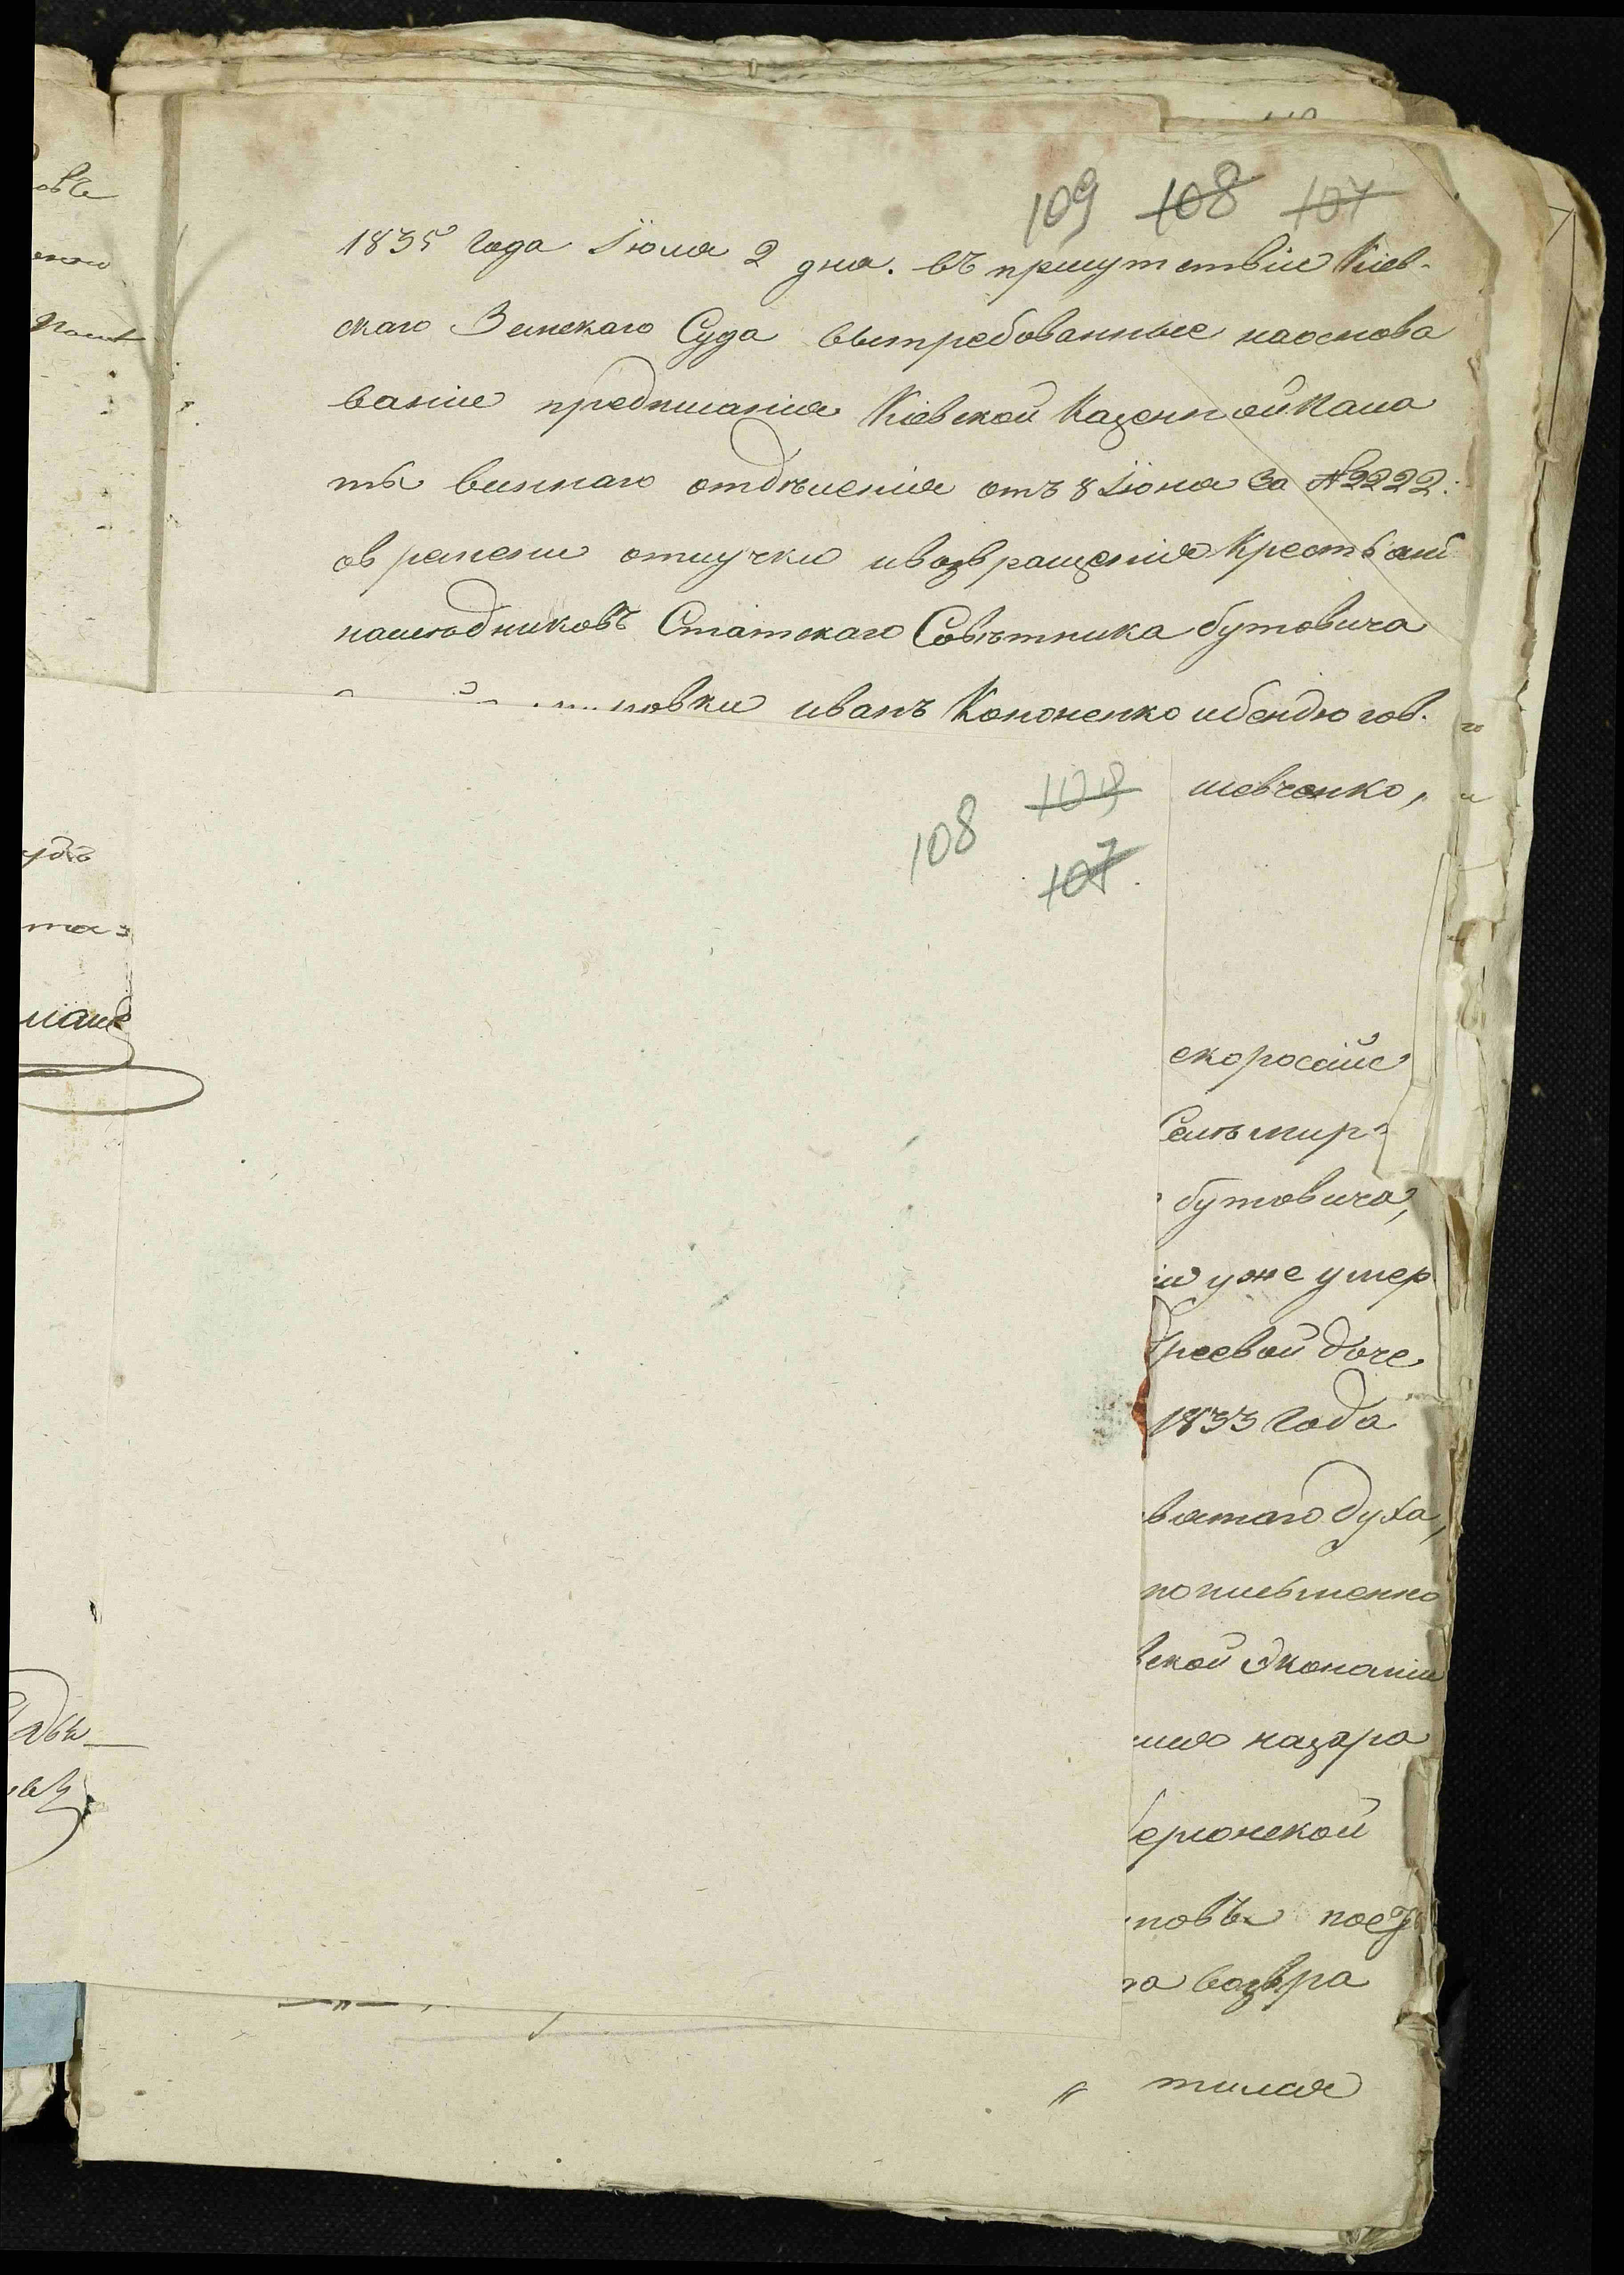 109 108 107
1835 года Іюля 2 дня. въ присутствіи Кіев-
скаго Земскаго Суда вытребованные наоснова
ваніи предписанія Кіевской Казенной Пала
ты виннаго отдѣленія отъ 8 Іюня за №2222.
овремени отлучки ивозвращенія Крестьянъ
наслѣдниковъ Статскаго Совѣтника бутовича
новки иванъ Кононенко ибендюгов.
108 108 шевченко,
107
скоросійс
Селѣ мир
бутовича,
и уже умер
реевой доче
1833 года
вятаго духа,
по письменно
ской Экономіи
назара
ерсонской
новъ
возвра
тился